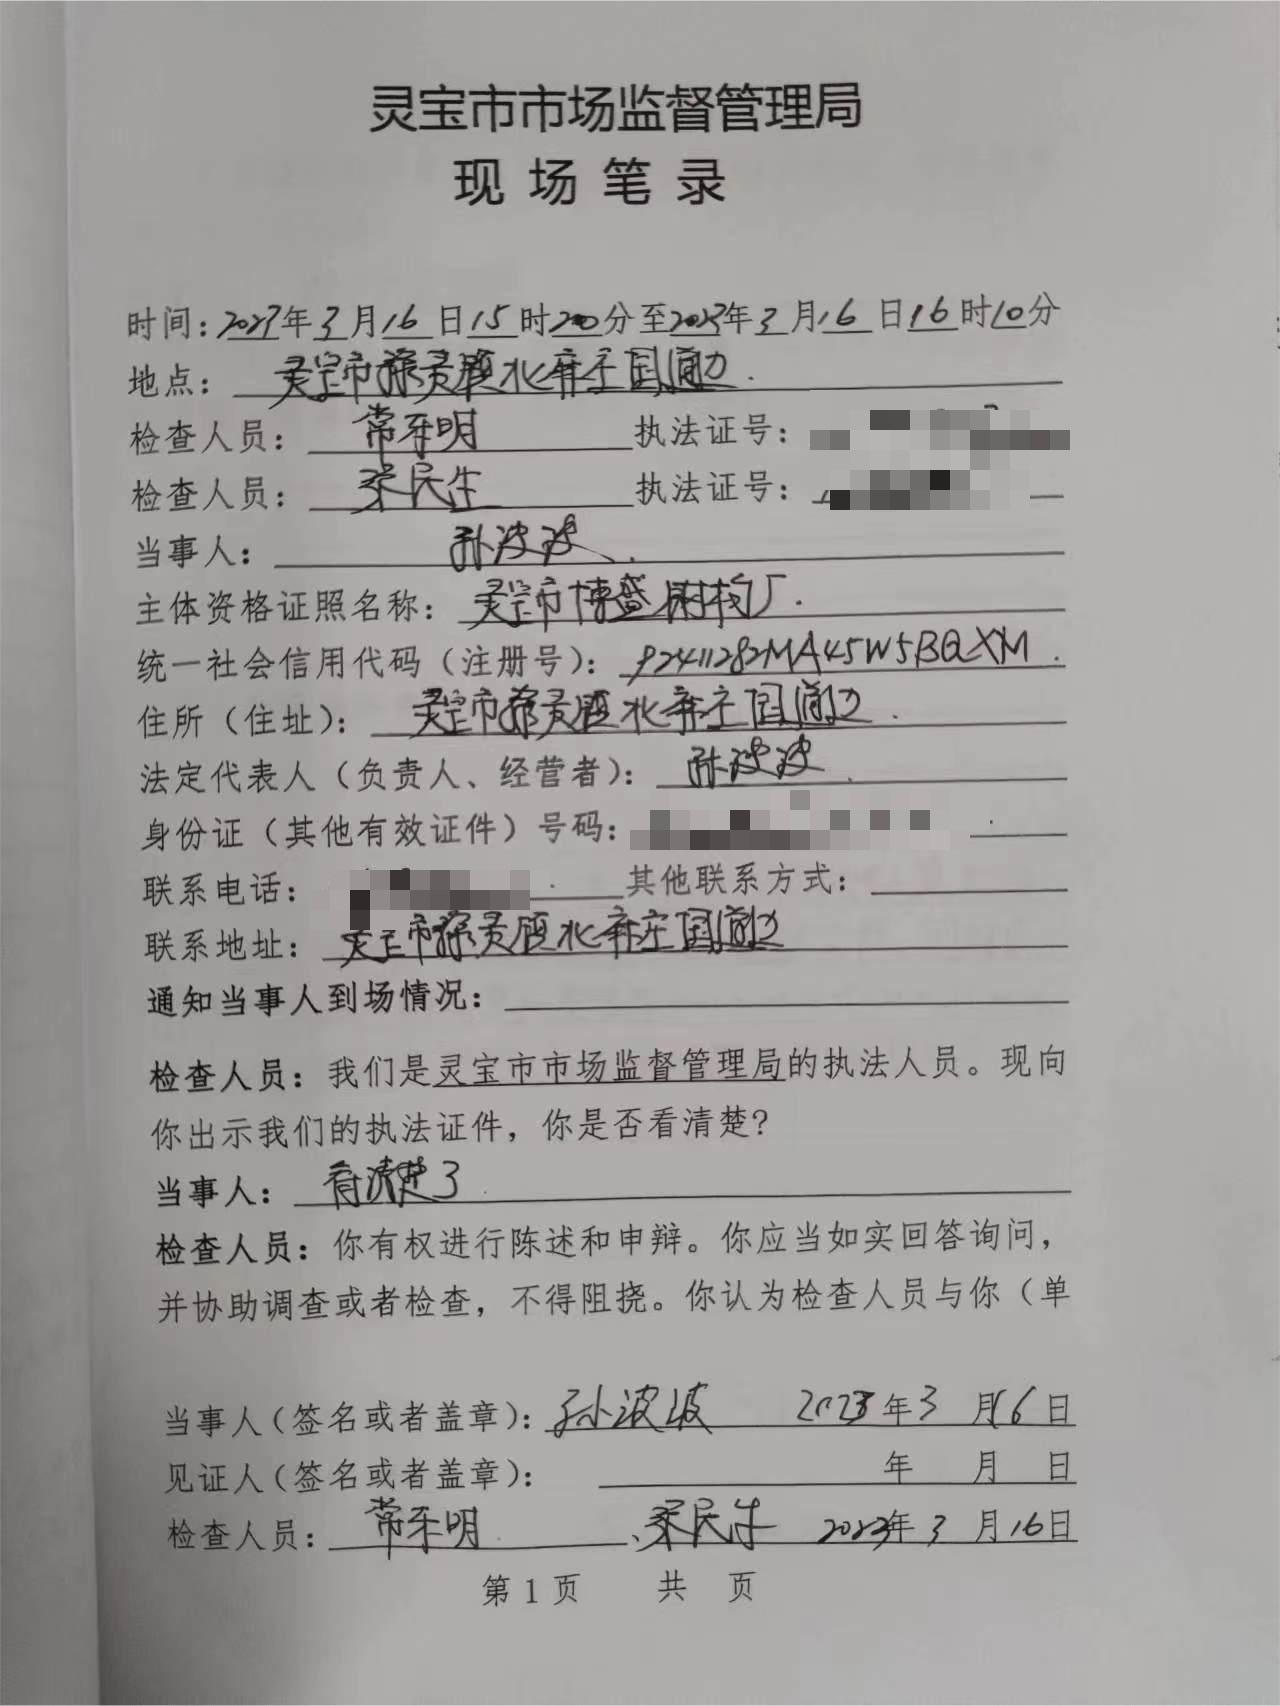 灵宝市市场监督管理局
现场笔录
时间：2023年3月16日15时20分至2023年3月16日16时10分
地点：灵宝市豫灵镇北麻庄国道边.
检查人员：常 明 执法证号：
检查人员：民生 执法证号：
当事人：孙波波.
主体资格证照名称：灵宝市博盛钢构厂.
统一社会信用代码（注册号）：92411282MA45W5BQXM.
住所（住址）：灵宝市豫灵镇北麻庄国道边.
法定代表人（负责人、经营者）：孙波波.
身份证（其他有效证件）号码：
联系电话： 其他联系方式：
联系地址：灵宝市豫灵镇北麻庄国道边
通知当事人到场情况：
检查人员：我们是灵宝市市场监督管理局的执法人员。现向
你出示我们的执法证件，你是否看清楚？
当事人：看清楚了.
检查人员：你有权进行陈述和申辩。你应当如实回答询问，
并协助调查或者检查，不得阻挠。你认为检查人员与你（单
当事人（签名或者盖章）：孙波波 2023年3月16日
见证人（签名或者盖章）： 年 月 日
检查人员：常 明、民生 2023年3月16日
第1页 共 页